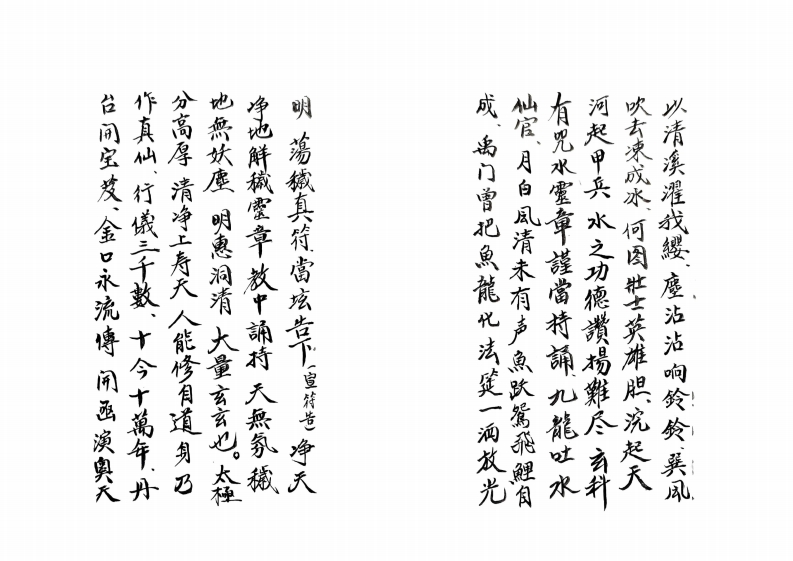 以清溪濯我纓、塵沾沾响鈴鈴、巽風
吹去凍成冰、何图壯士英雄胆、浣起天
河起甲兵 水之功德讚揚難尽 玄科
有咒水靈章謹當持誦 九龍吐水
仙官、月白風清未有声 魚跃鴛飛鯉自
成、禹门曾把魚龍化 法筵一洒放光
明 蕩穢真符、當坛告下（宣符告）净天
净地解穢靈章 教中誦持 天無氛穢
地無妖塵 明惠洞清 大量玄玄也。太極
分高厚 清净上寿天 人能修自道 身乃
作真仙、行儀三千數、十今十萬年、丹
台開宝笈、金口永流傳 開函演奧 天